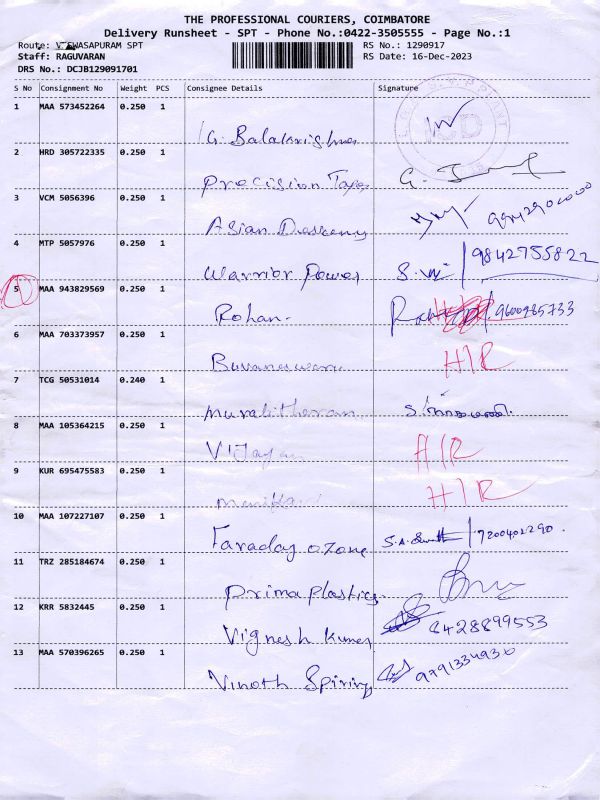 THE PROFESSIONAL COURIERS, COIMBATORE
Delivery Runsheet - SPT - Phone No.:0422-3505555 - Page No.:1
Route: VISWASAPURAM SPT RS No.: 1290917
Staff: RAGUVARAN RS Date: 16-Dec-2023
DRS No.: DCJB129091701
S No Consignment No Weight PCS Consignee Details Signature
1 MAA 573452264 0.250 1
G. Balakrishna
2 HRD 305722335 0.250 1
Precision Tapes G.
3 VCM 5056396 0.250 1
Asian
4 MTP 5057976 0.250 1
Warrior Power 9842755822
5 MAA 943829569 0.250 1
Rohan. 9600985733
6 MAA 703373957 0.250 1
Buvaneswari HIR
7 TCG 50531014 0.240 1
Muralitharan
8 MAA 105364215 0.250 1
Vijayan HIR
9 KUR 695475583 0.250 1
Manikan HIR
10 MAA 107227107 0.250 1
Faraday ozone 7200402290.
11 TRZ 285184674 0.250 1
Prima plastics
12 KRR 5832445 0.250 1
Vignesh kumar 8428899553
13 MAA 570396265 0.250 1
Vinoth Spring 9791334930